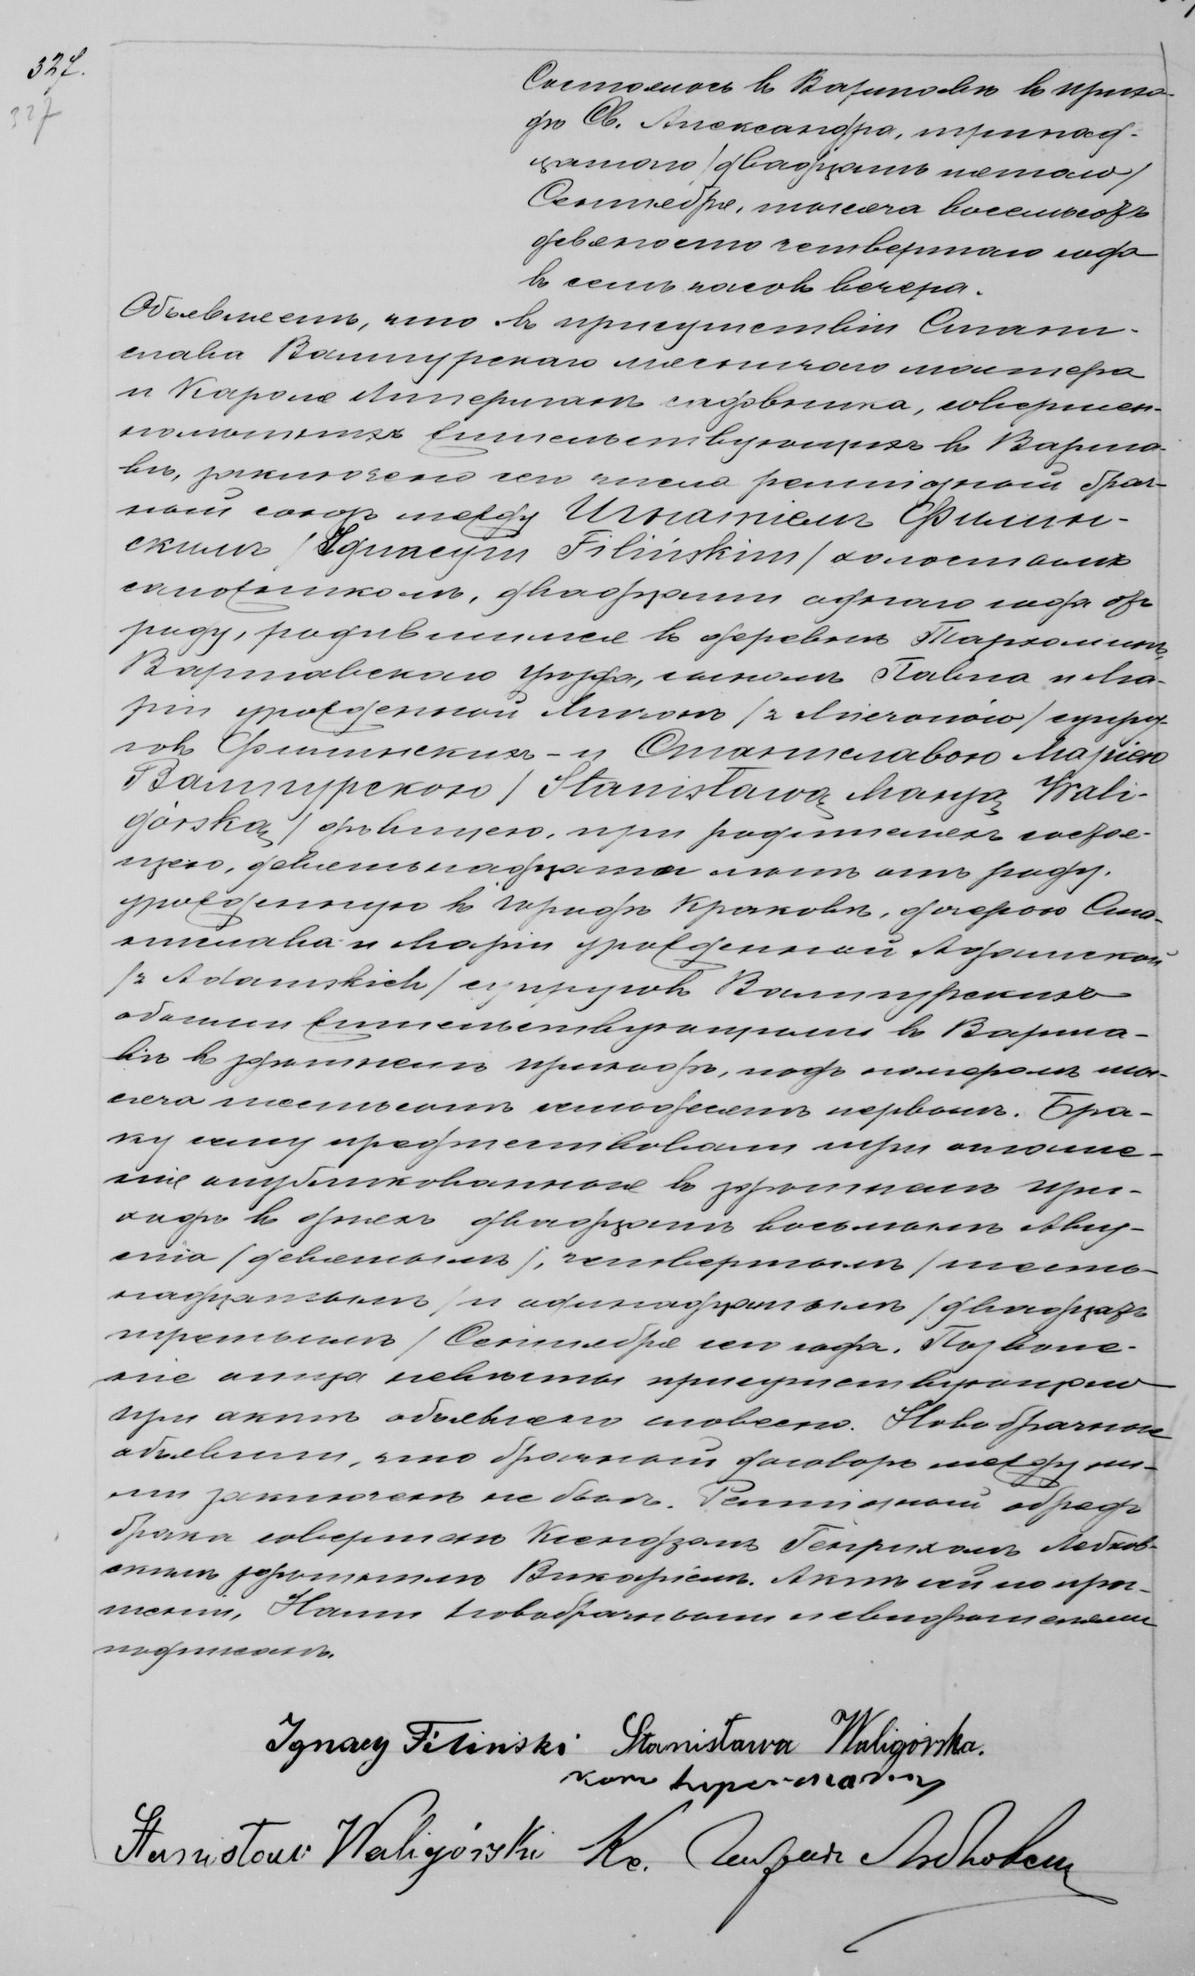 327.
327
Состоялось въ Варшавѣ въ прихо-
дѣ Св. Александра, тринад-
цатаго /двадцать пятаго/
Сентября, тысяча восемьсотъ
девяносто четвертаго года
въ семь часовъ вечера.
Объявляемъ, что въ присутствіи Стани-
слава Валигурскаго мастера
и Кароля садовника, совершен-
нолѣтнихъ жительствующихъ въ Варша-
вѣ, заключенъ сего числа религіозный брач-
ный союзъ между Игнатіемъ Филин-
скимъ /Ignacym Filińskim/ холостымъ
сапожникомъ, двадцати одного года отъ
роду, родившимся въ деревнѣ Тархоминѣ,
Варшавскаго уѣзда, сыномъ Павла и Ма-
ріи урожденной /z Miczonów/ супру-
говъ Филинскихъ - и Станиславою Маріею
Валигурскою /Stanisławą Maryą Wali-
górską/ дѣвицею, при родителяхъ состоя-
щею, девятнадцати лѣтъ отъ роду,
урожденную въ городѣ Краковѣ, дочерью Ста-
нислава и Маріи урожденной Адамской
/z Adamskich/ супруговъ Валигурскихъ
обоими жительствующими въ Варша-
вѣ въ здѣшнемъ приходѣ, подъ номеромъ ты-
сяча шестьсотъ семьдесятъ первымъ. Бра-
ку сему предшествовали три оглаше-
нія опубликованныя въ здѣшнемъ при-
ходѣ въ дняхъ двадцать восьмымъ Авгу-
ста /девятымъ/, четвертымъ /шест-
надцатымъ/ и одинадцатымъ /двадцать
третьимъ/ Сентября сего года. Позволе-
ніе отца невѣсты присутствующаго
при актѣ объявлено словесно. Новобрачные
объявили, что брачный договоръ между ни-
ми заключенъ не былъ. Религіозный обрядъ
брака совершенъ Ксендзомъ Генрихомъ Любов-
скимъ здѣшнимъ Викаріемъ. Актъ сей по про-
чтеніи, Нами новобрачными и свидѣтелями
подписанъ.
Ignacy Filinski Stanisława Waligórska.
Stanisław Waligórski Кс. Генрихъ